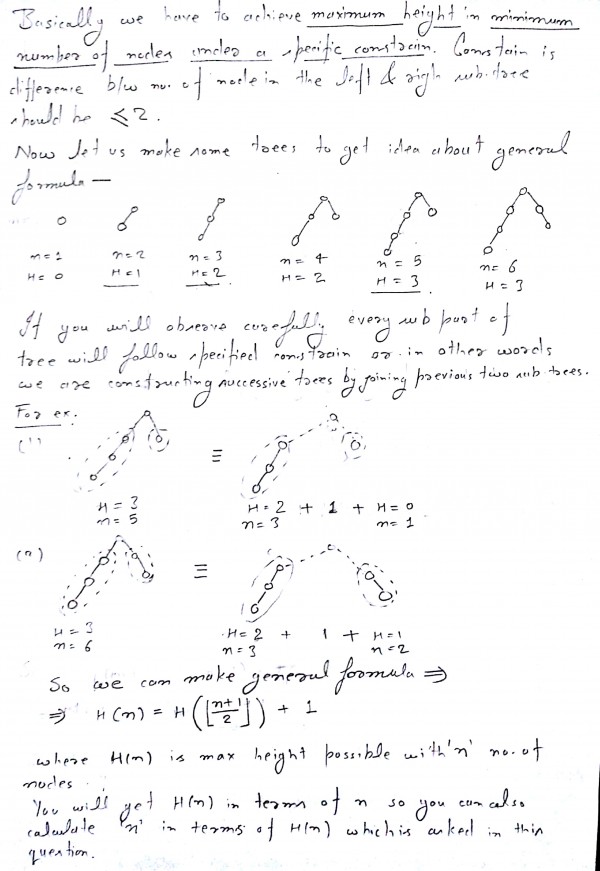 Basically we have to achieve maximum height in minimum
number of nodes under a specific constrain. Constain is
difference b/w no. of node in the left & righ sub-tree
should be ≤ 2.
Now let us make some trees to get idea about general
formula —
n = 1 n = 2 n = 3 n = 4 n = 5 n = 6
H = 0 H = 1 H = 2 H = 2 H = 3 H = 3
If you will observe carefully every sub part of
tree will follow specified constrain or in other words
we are constructing successive trees by joining previous two sub trees.
For ex.
(1) ≡
H = 3 H = 2 + 1 + H = 0
n = 5 n = 3 n = 1
(2) ≡
H = 3 H = 2 + 1 + H = 1
n = 6 n = 3 n = 2
So we can make general formula ⇒
⇒ H(n) = H(⌊n+1/2⌋) + 1
where H(n) is max height possible with 'n' no. of
nodes.
You will get H(n) in terms of n so you can also
calculate 'n' in terms of H(n) which is asked in this
question.